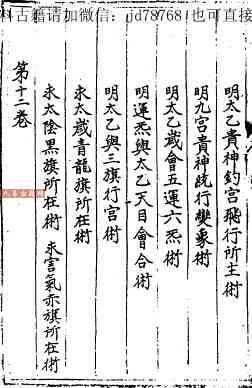 科古籍请加微信：jd78768 也可直接
明太乙貴神釣宮飛行所主術
明九宮貴神旣行變象術
明太乙歲會五運六炁術
明運炁與太乙天目會合術
明太乙與三旗行宮術
求太歲青龍旗所在術
求太陰黑旗所在術 求害氣赤旗所在術
第十二卷